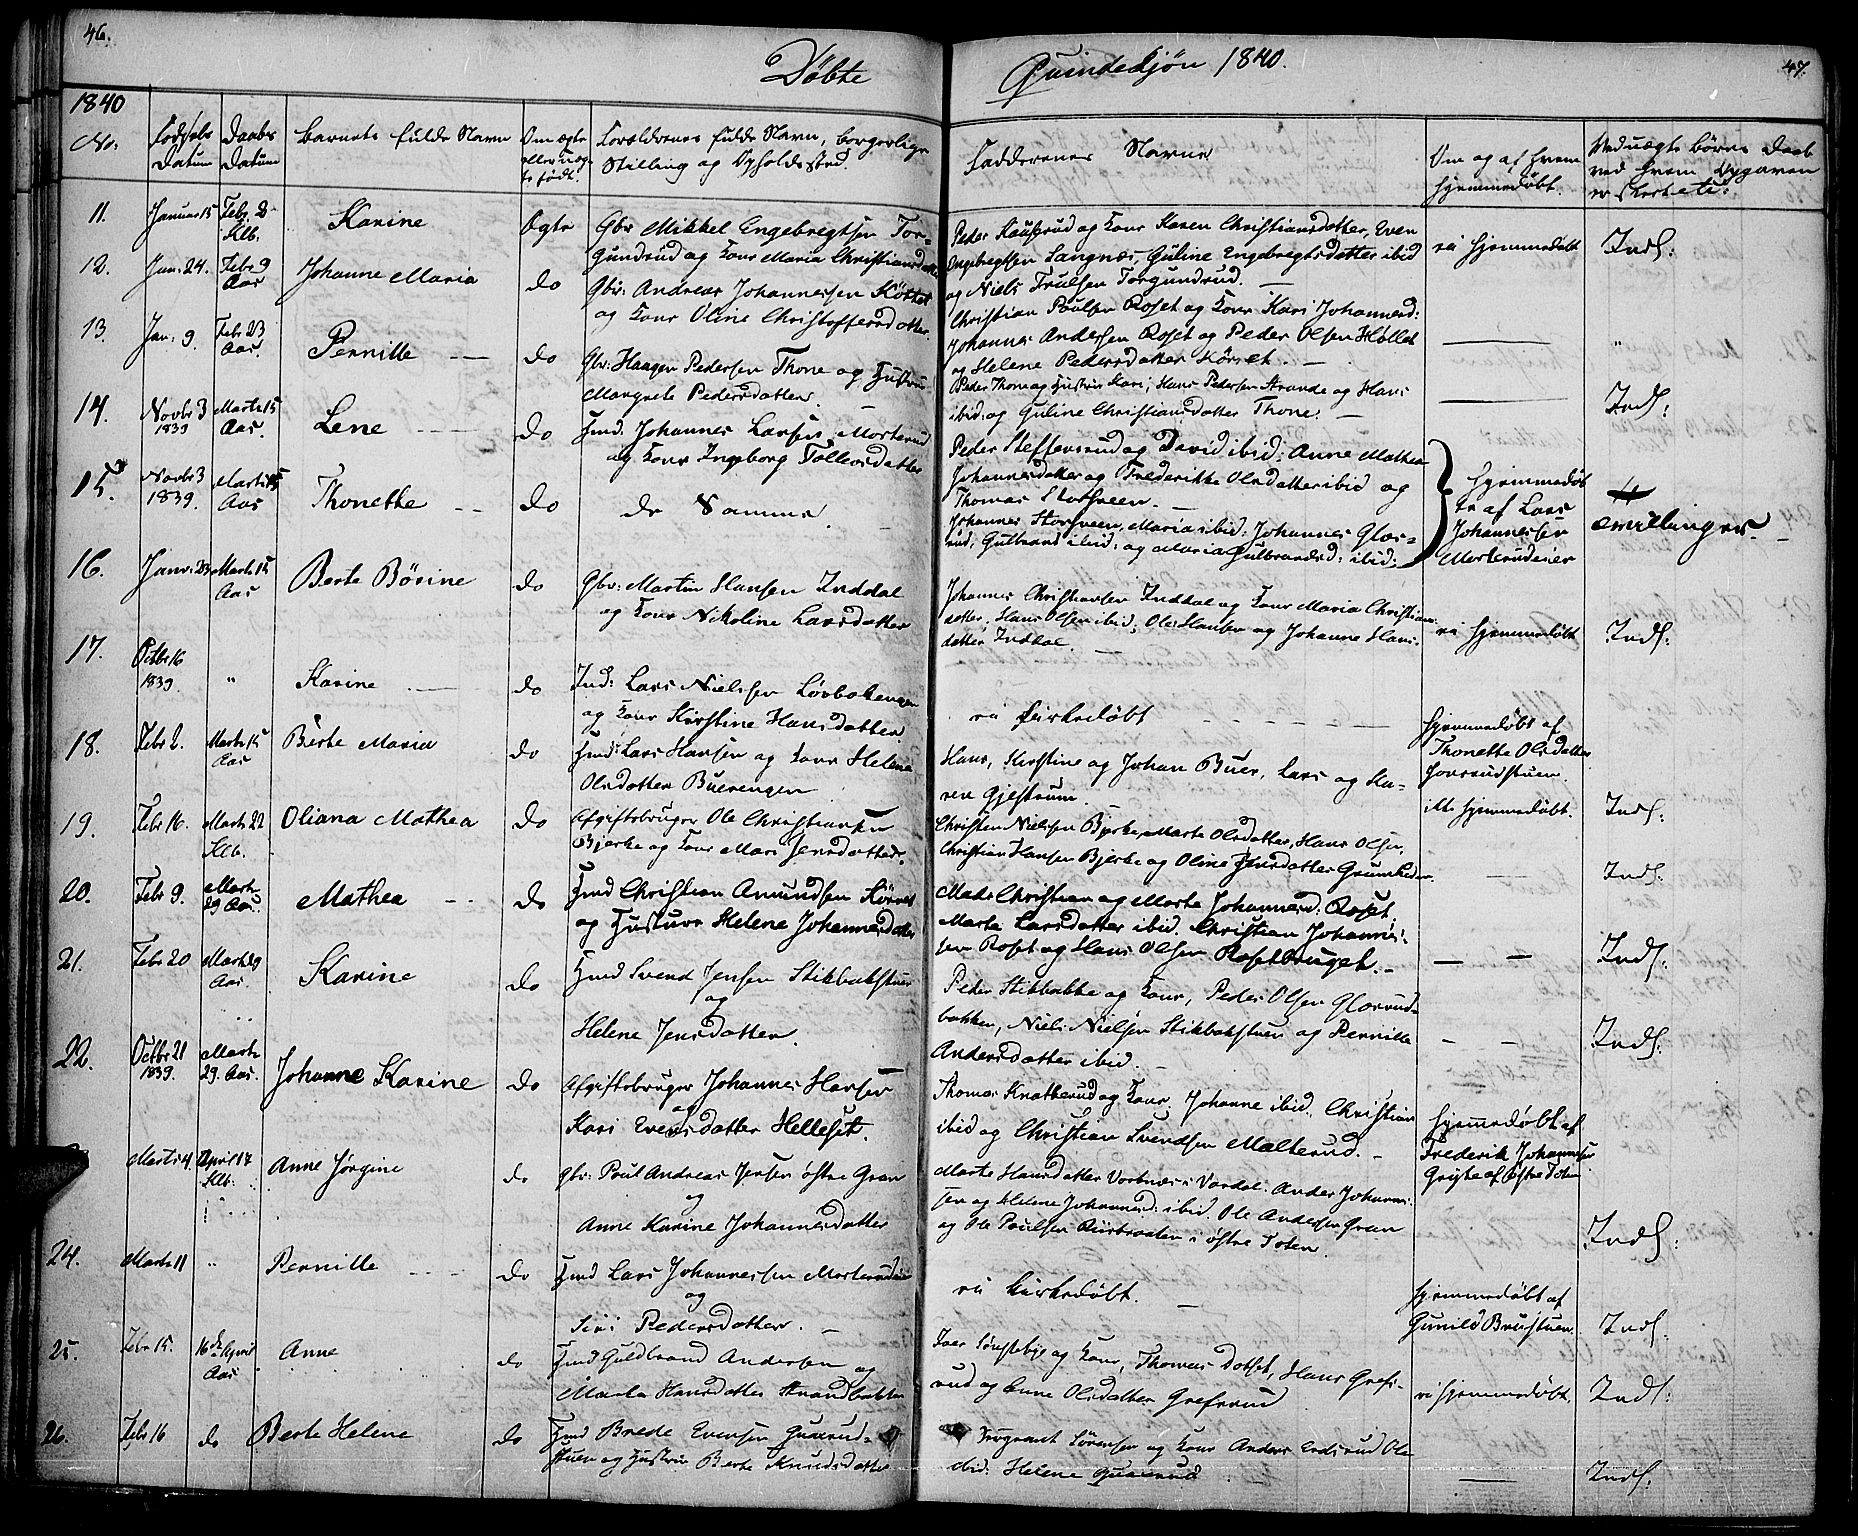 46.
Døbte
1840
No.
Fødsels Datum
Daabs Datum
Barnets fulde Navn
Om ægte eller uægte født.
Forældrenes fulde Navn, borgerlige Stilling og Opholdssted.
11. Januar 15 Febr. 2 Klb. Karine Ægte Gbr. Mikkel Engebregtsen Tor-
gundrud og Kone Maria Christiansdatter
12. Jan: 24. Febr 9 Aas Johanne Maria do Gbr: Andreas Johannessen
og Kone Oline Christoffersdatter
13. Jan: 9. Febr 23 Aas. Pernille do Gbr: Haagen Pedersen Thone og Hustru
Margrete Pedersdatter.
14. Novbr 3 1839 Marts 15 Aas. Lene do Hmd. Johannes Larsen Morterud
og Kone Ingeborg Tollevsdatter
15. Novbr 3 1839. Marts 15 Aas Thonette do de Samme.
16. Januar 23 Marts 15 Aas Berte Børine do Gbr: Martin Hansen Inddal
og Kone Nikoline Larsdatter
17. Octbr 16 1839. " Karine do Ind: Lars Nielsen
og Kone Kirstine Hansdatter
18. Febr 2. Marts 15 Aas Berte Maria do Hmd: Lars Hansen og Kone Helene
Olsdatter Buerengen
19. Febr 16. Marts 22 Klb. Oliana Mathea do Afgiftsbruger Ole Christiansen
Bjerke og Kone Mari Jensdatter
20. Febr 9. Marts 29 Aas. Mathea do Hmd Christian Amundsen
og Hustru Helene Johannesdatter
21. Febr 20 Marts 29 Aas. Karine do Hmd Svend Jensen Stikbakstuen
og
Helene Jensdatter.
22. Octbr 21 1839. Marts 29. Aas. Johanne Karine do Afgiftsbruger Johannes Hansen
og
Kari Evensdatter Helleset.
Marts 4 April 17 Klb. Anne Jørgine do Gbr: Poul Andreas Jensen østre Gran
og
Anne Karine Johannesdatter
24. Marts 11 " Pernille do Hmd Lars Johannessen
og
Siri Pedersdatter.
25. Febr 15. 16de April Aas Anne do Hmd Guldbrand Andersen og
Marta Hansdatter Strandbakken
26. Febr 16 do Berte Helene do Hmd Brede Evensen
stuen og Hustru Berte Knudsdatter
Quindekjøn 1840.
47.
Faddernes Navne
Om og af hvem hjemmedøbt.
Ved uægte Børns Daab ved hvem Opgaven er skeet etc:
Peder og Kone Karen Christiansdatter, Even
Engebregtsen Langnæs, Guline Engebregtsdatter ibid
og Niels Trulsen Torgundrud.
ei hjemmedøbt Inds:
Christian Poulsen Roset og Kone Kari Johannesd:
Johannes Andersen Roset og Peder Olsen
og Helene Pedersdatter
"
Peder Thone og Hustru Kari; Hans Pedersen Strande og Hans
ibid: og Guline Christiansdatter Thone.
Inds:
Peder Steffensrud og David ibid: Anne Mathea
Johannesdatter og Frederikke Olsdatter ibid og
Thomas Storsveen.
Johannes Storsveen, Maria ibid: Johannes Glæs-
rud; Gulbrand ibid: og Maria Gulbrandsd: ibid:
hjemmedøb
te af Lars
Johannessen
Morterudeier
tvillinger.
Johannes Christiansen Inddal og Kone Maria Christians-
datter, Hans Olsen ibid; Ole Hansen og Johanne Hans-
datter Inddal.
ei hjemmedøbt Inds:
ei kirkedøbt
hjemmedøbt af
Thonette Olsdatter
Hans, Kirstine og Johan Buer, Lars og Ka-
ren Gjestrum.
ikke hjemmedøbt. Inds:
Christen Nielsen Bjerke, Marte Olsdatter, Hans Olsen,
Christian Hansen Bjerke og Oline Jensdatter
Inds:
Mads Christian og Marte Johannesd: Roset,
Marte Larsdatter ibid. Christian Johannes-
sen Roset og Hans Olsen Rosetbruget.
Inds:
Peder Stikbakke og Kone, Peder Olsen Glærud-
bakken, Niels Nielsen Stikbakstuen og Pernille
Andersdatter ibid.
Inds:
Thomas Knatterud og Kone, Johanne ibid. Christian
ibid og Christian Svendsen Malterud.
hjemmedøbt af
Frederik Johannessen
af østre Toten
Marte Hansdatter i Vardal: Anders Johannes-
sen og Helene Johannesd: ibid. Ole Andersen Gran
og Ole Poulsen i østre Toten.
Inds:
ei kirkedøbt.
hjemmedøbt af
Gunild Brustuen.
Inds:
Iver Sønsteby og Kone, Thomas Dotset, Hans Grefs-
rud og Anne Olsdatter Grefsrud
ei hjemmedøbt. Inds:
Sørensen og Kone Anders Ole
ibid: Helene
Inds: